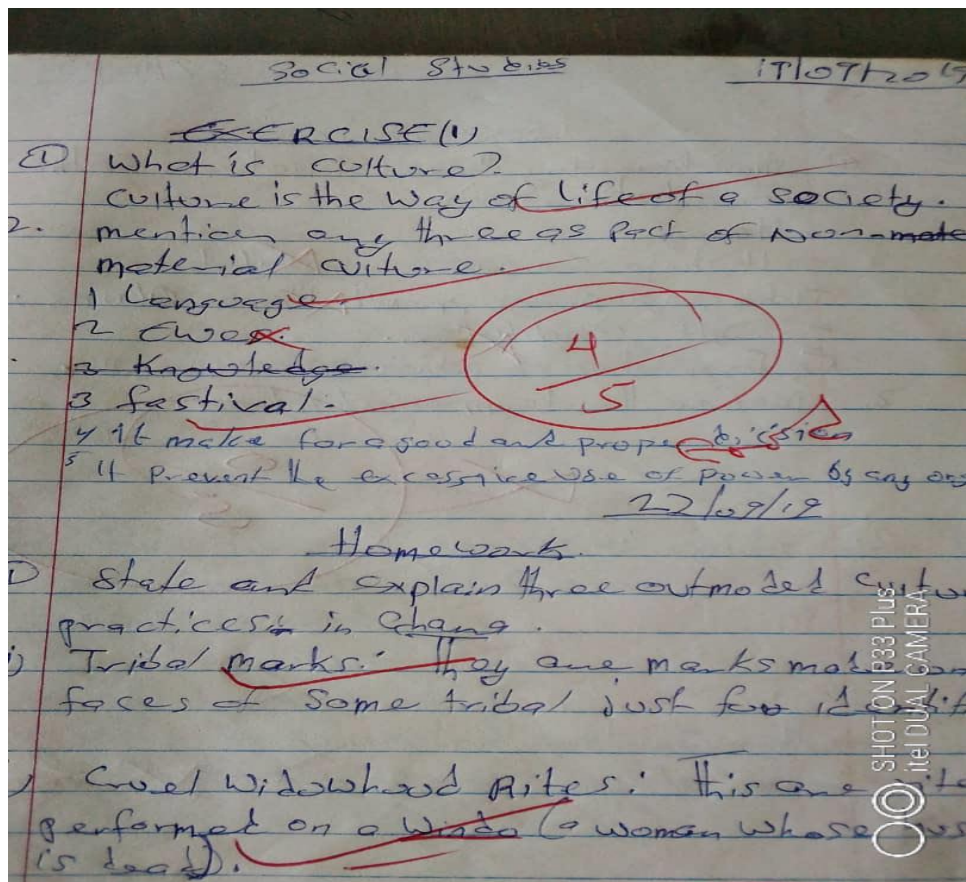 Social Studies
EXERCISE (1)
① What is culture?
culture is the way of life of a society.
2. mention any three as Part of Non-mate
material culture.
1 Language
2 Ewe
3 Knowledge.
3 fastival.
4
5
4 it make for a good and proper
5 It Prevent the excessive use of power by any org
22/09/19
Homework
① State and explain three outmoded Cultu
practices in Ghana.
i) Tribal marks: They are marks made on
faces of some tribal just for identif
) Cruel Widowhood Rites: This are rite
performed on a Windo (a woman whose hus
is dead).
SHOT ON P33 Plus
itel DUAL CAMERA